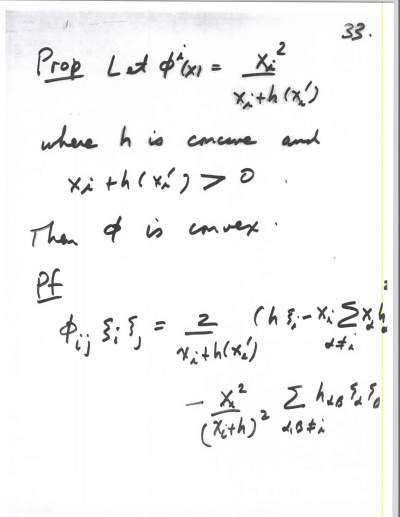 33.
Prop Let ϕ^i(x) = x_i^2 / (x_i + h(x_i'))
where h is concave and
x_i + h(x_i') > 0.
Then ϕ is convex.
Pf
ϕ_ij ξ_i ξ_j = 2 / (x_i + h(x_i')) (h ξ_i - x_i Σ_{α≠i}
- x_i^2 / (x_i + h)^2 Σ_{α,β≠i} h_αβ ξ_α ξ_β